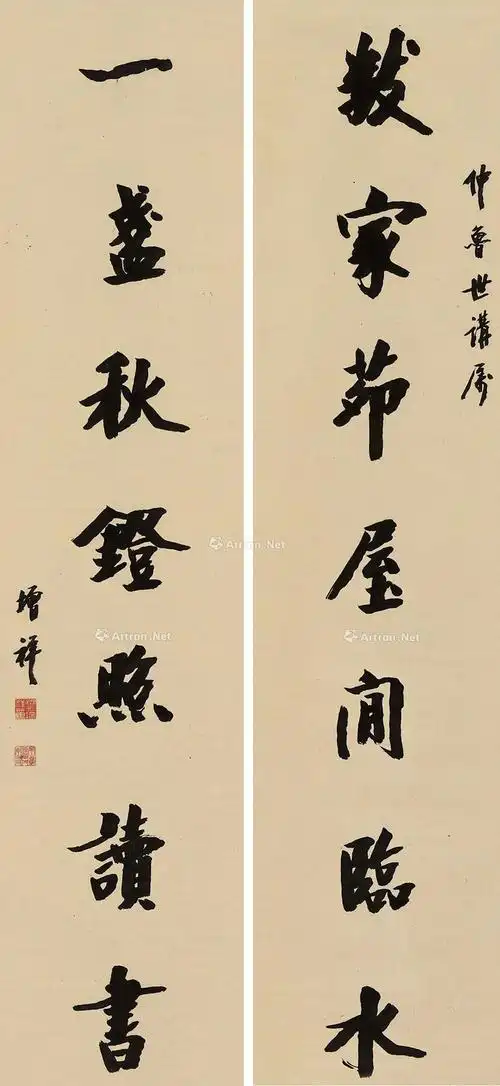 仲魯世講属
數家茆屋閒臨水
一盞秋鐙照讀書
增祥
Artron.Net
Artron.Net
Artron.Net